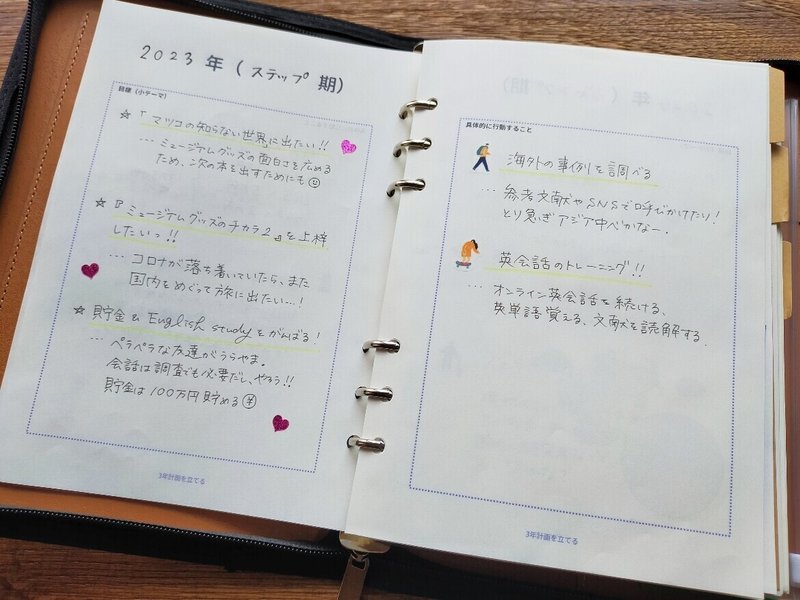 2023年(ステップ期)
目標(小テーマ)
☆「マツコの知らない世界」に出たい!!
…ミュージアムグッズの面白さを広める
ため、次の本を出すためにも☺
☆『ミュージアムグッズのチカラ2』を上梓
したいっ!!
…コロナが落ち着いていたら、また
国内をめぐって旅に出たい…!
☆貯金& English studyをがんばる!
…ペラペラな友達がうらやま。
会話は調査でも必要だし、やろう!!
貯金は100万円貯める¥
3年計画を立てる
具体的に行動すること
海外の事例を調べる
…参考文献やSNSで呼びかけたり!
とり急ぎアジア中べかなー.
英会話のトレーニング!!
…オンライン英会話を続ける、
英単語覚える、文献を読解する.
3年計画を立てる